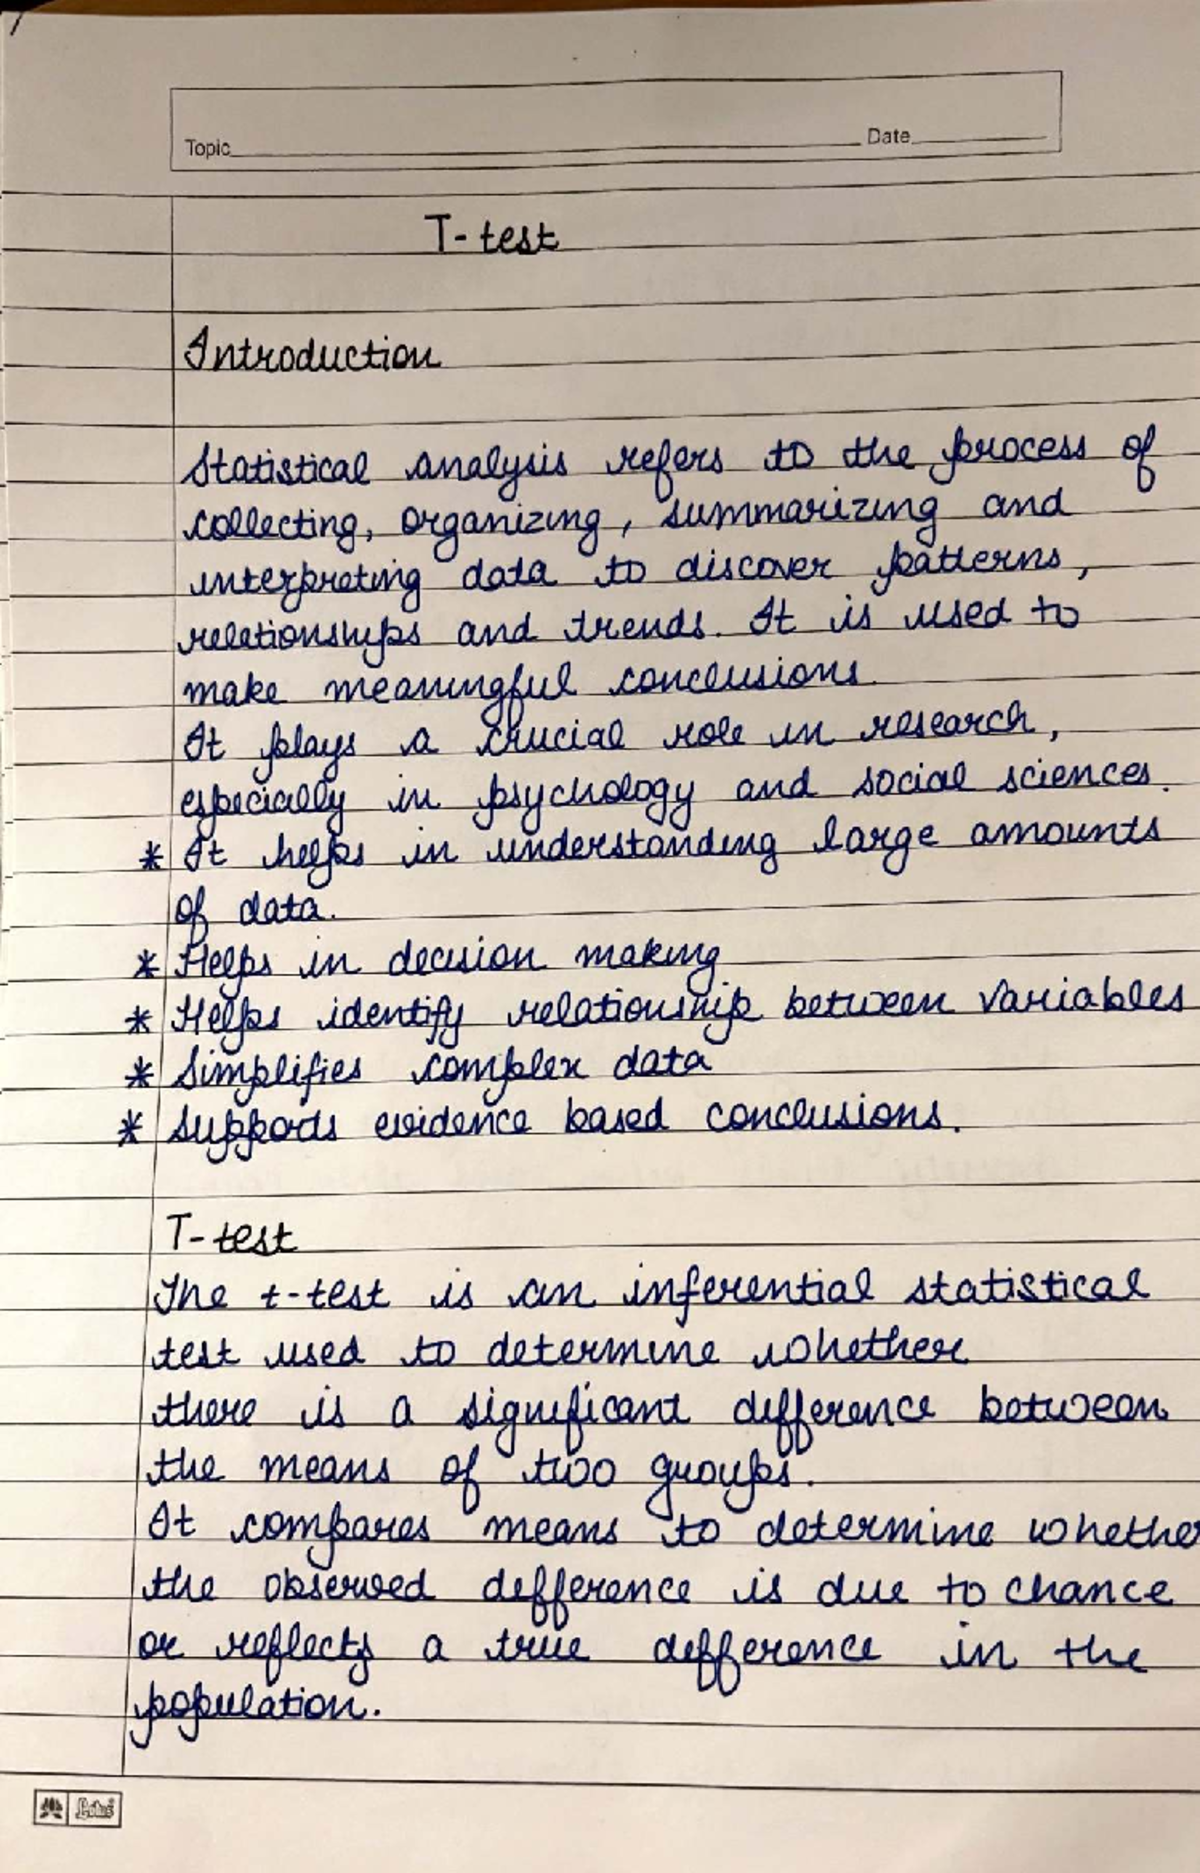 Topic Date
T-test
Introduction
Statistical analysis refers to the process of
collecting, organizing, summarizing and
interpreting data to discover patterns,
relationships and trends. It is used to
make meaningful conclusions.
It plays a crucial role in research,
especially in psychology and social sciences.
* It helps in understanding large amounts
of data.
* Helps in decision making
* Helps identify relationship between variables
* Simplifies complex data
* Supports evidence based conclusions.
T-test
The t-test is an inferential statistical
test used to determine whether
there is a significant difference between
the means of two groups.
It compares means to determine whethe
the observed difference is due to chance
or reflects a true difference in the
population.
Lotus